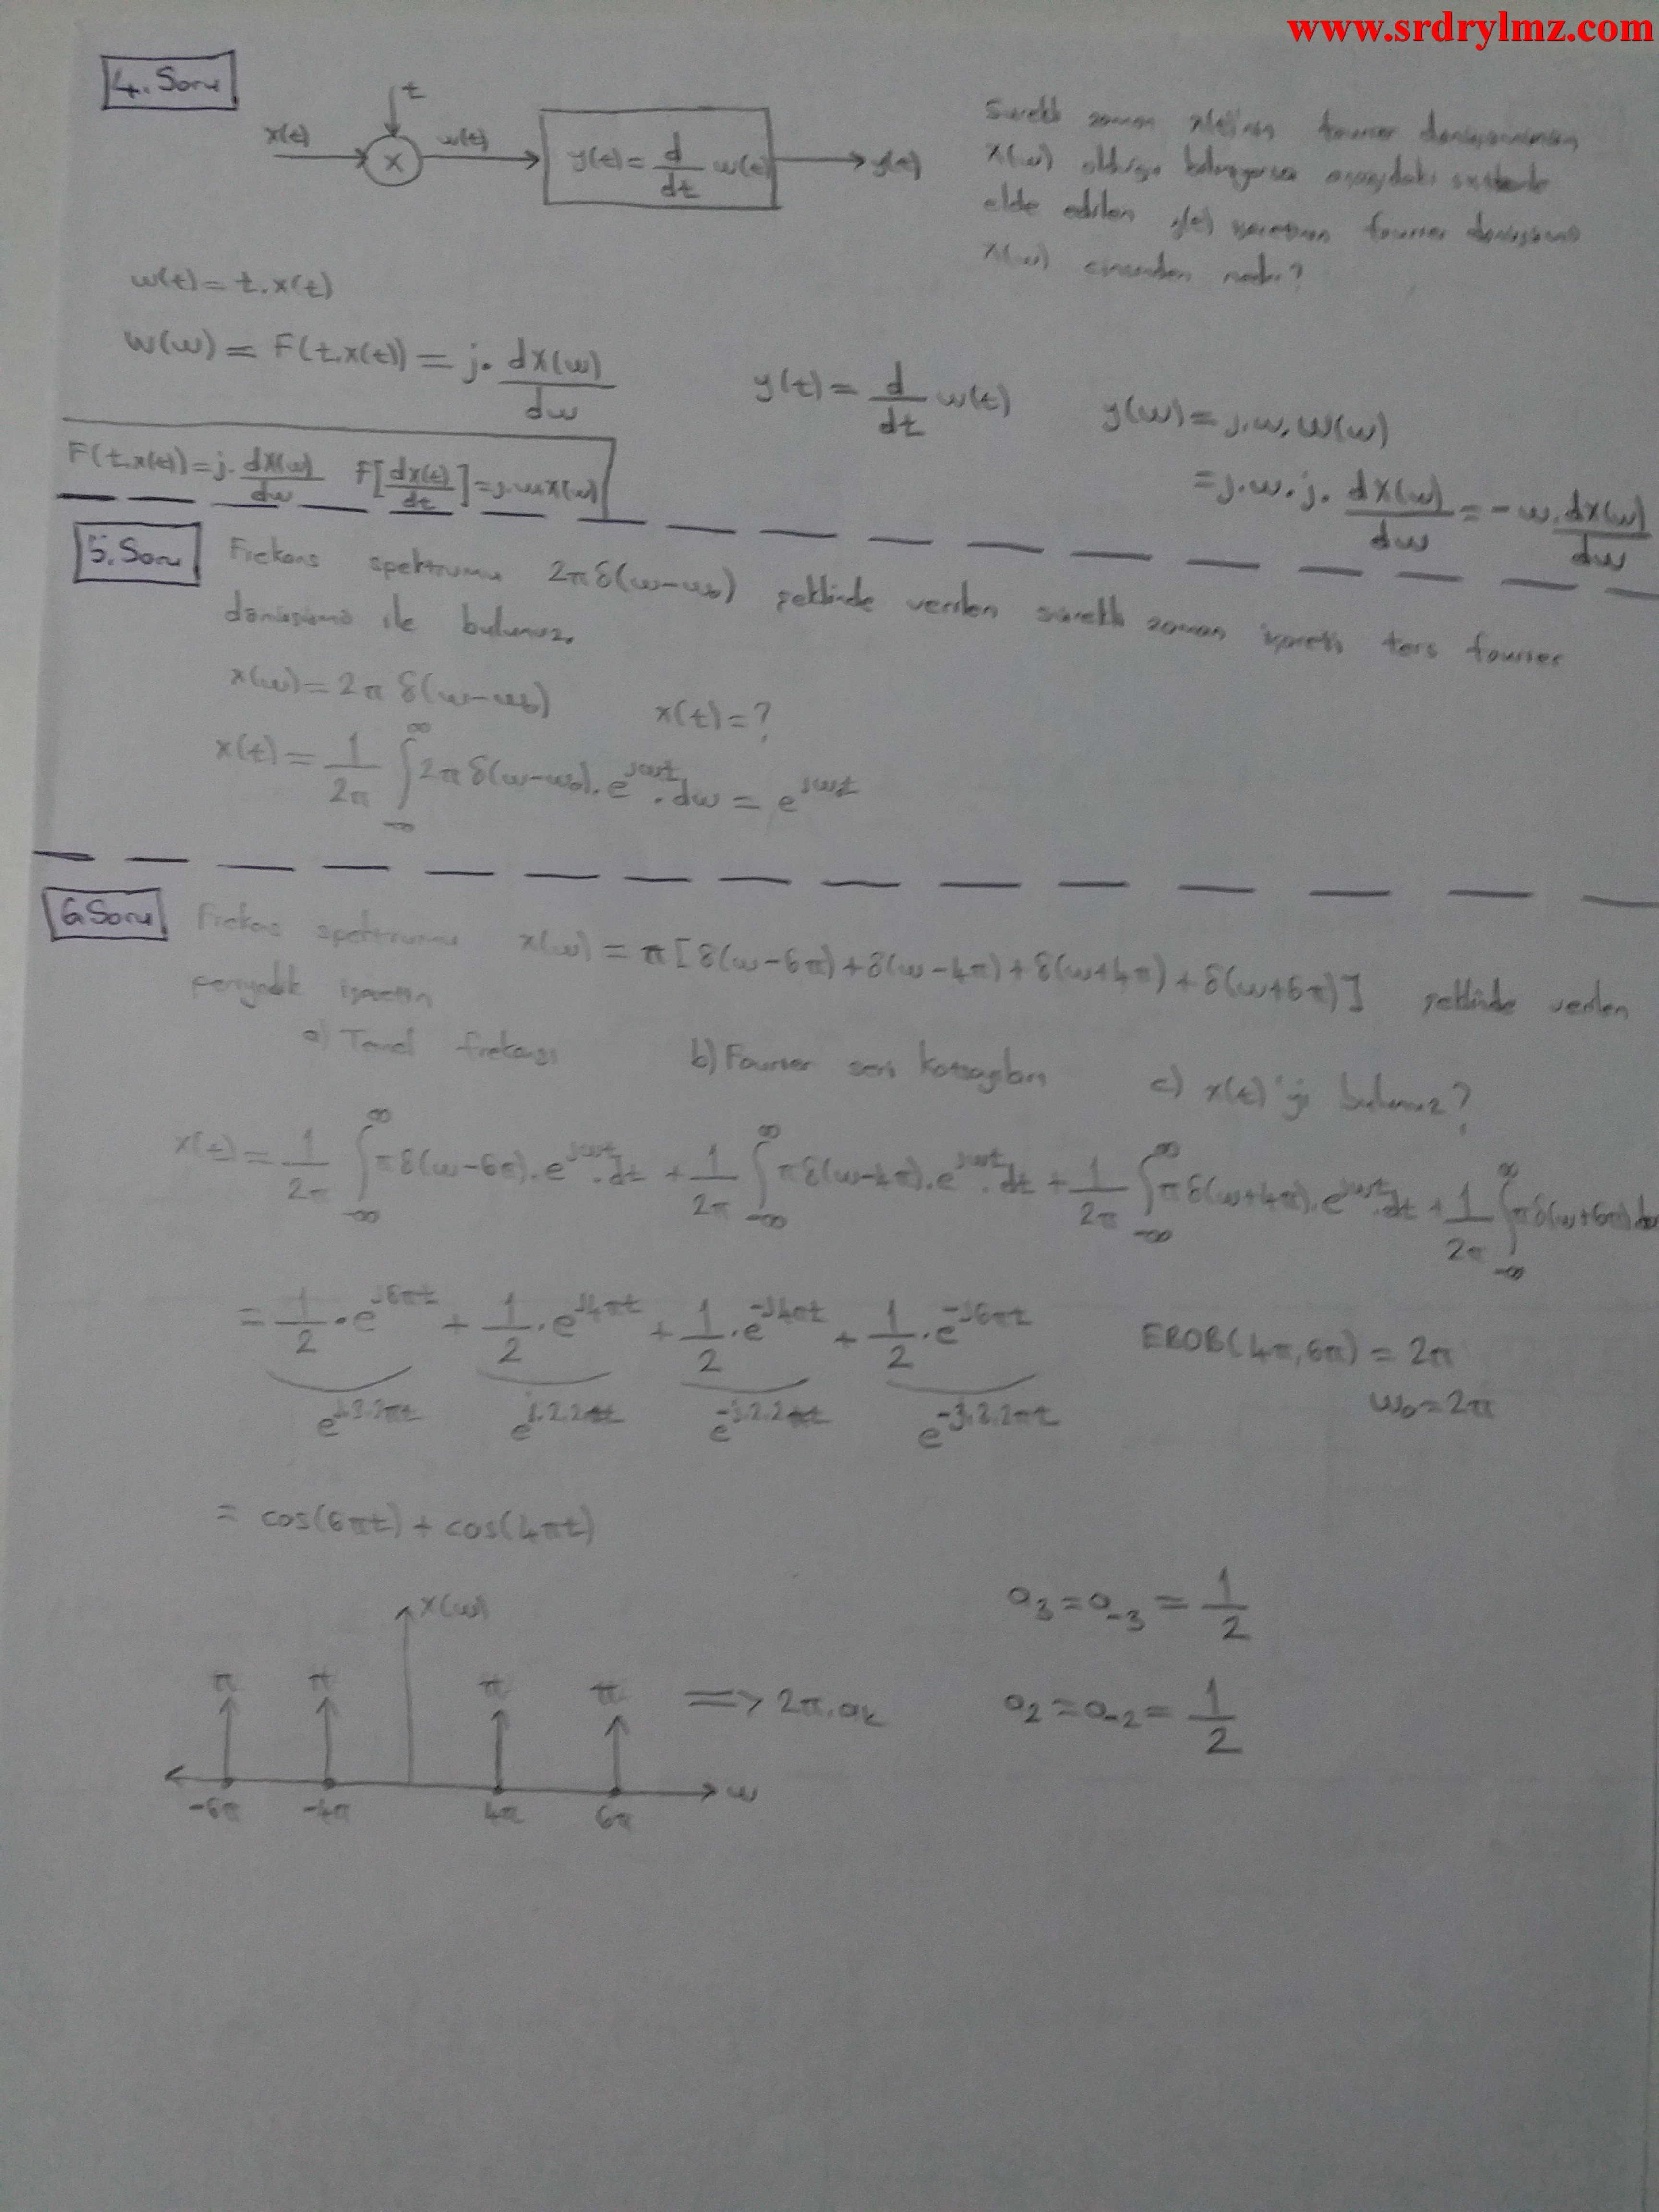 www.srdrylmz.com
4. Soru
x(t) t X w(t) y(t) = d/dt w(t) y(t)
Sürekli zaman x(t)'nin fourier dönüşümünün
X(w) olduğu biliniyorsa aşağıdaki sistemle
elde edilen y(t) işaretinin fourier dönüşümü
X(w) cinsinden nedir?
w(t) = t.x(t)
W(w) = F(t.x(t)) = j. dX(w)/dw
y(t) = d/dt w(t) y(w) = j.w.W(w)
= j.w.j. dX(w)/dw = -w. dX(w)/dw
F(t.x(t)) = j. dX(w)/dw F[dx(t)/dt] = j.w.X(w)
5. Soru Frekans spektrumu 2πδ(w-w₀) şeklinde verilen sürekli zaman işareti ters fourier
dönüşümü ile bulunuz.
x(w) = 2π δ(w-w₀) x(t) = ?
x(t) = 1/2π ∫_{-∞}^{∞} 2π δ(w-w₀).e^{jwt}.dw = e^{jw₀t}
6. Soru Frekans spektrumu x(w) = π[δ(w-6π)+δ(w-4π)+δ(w+4π)+δ(w+6π)] şeklinde verilen
periyodik işaretin
a) Temel frekansı b) Fourier seri katsayıları c) x(t)'yi bulunuz?
x(t) = 1/2π ∫_{-∞}^{∞} πδ(w-6π).e^{jwt}.dt + 1/2π ∫_{-∞}^{∞} πδ(w-4π).e^{jwt}.dt + 1/2π ∫_{-∞}^{∞} πδ(w+4π).e^{jwt}.dt + 1/2π ∫_{-∞}^{∞} πδ(w+6π)
= 1/2.e^{j6πt} + 1/2.e^{j4πt} + 1/2.e^{-j4πt} + 1/2.e^{-j6πt} EBOB(4π,6π) = 2π
e^{j.3.2πt} e^{j.2.2πt} e^{-j.2.2πt} e^{-j.3.2πt} w₀=2π
= cos(6πt) + cos(4πt)
x(w)
a₃ = a₋₃ = 1/2
π π π π => 2π.ak a₂ = a₋₂ = 1/2
-6π -4π 4π 6π w